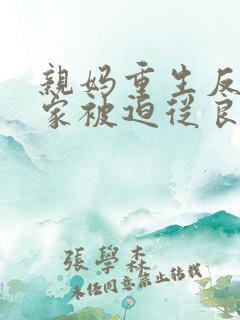 親妈重生反
家被迫從良
張學森
未任同意禁止转載